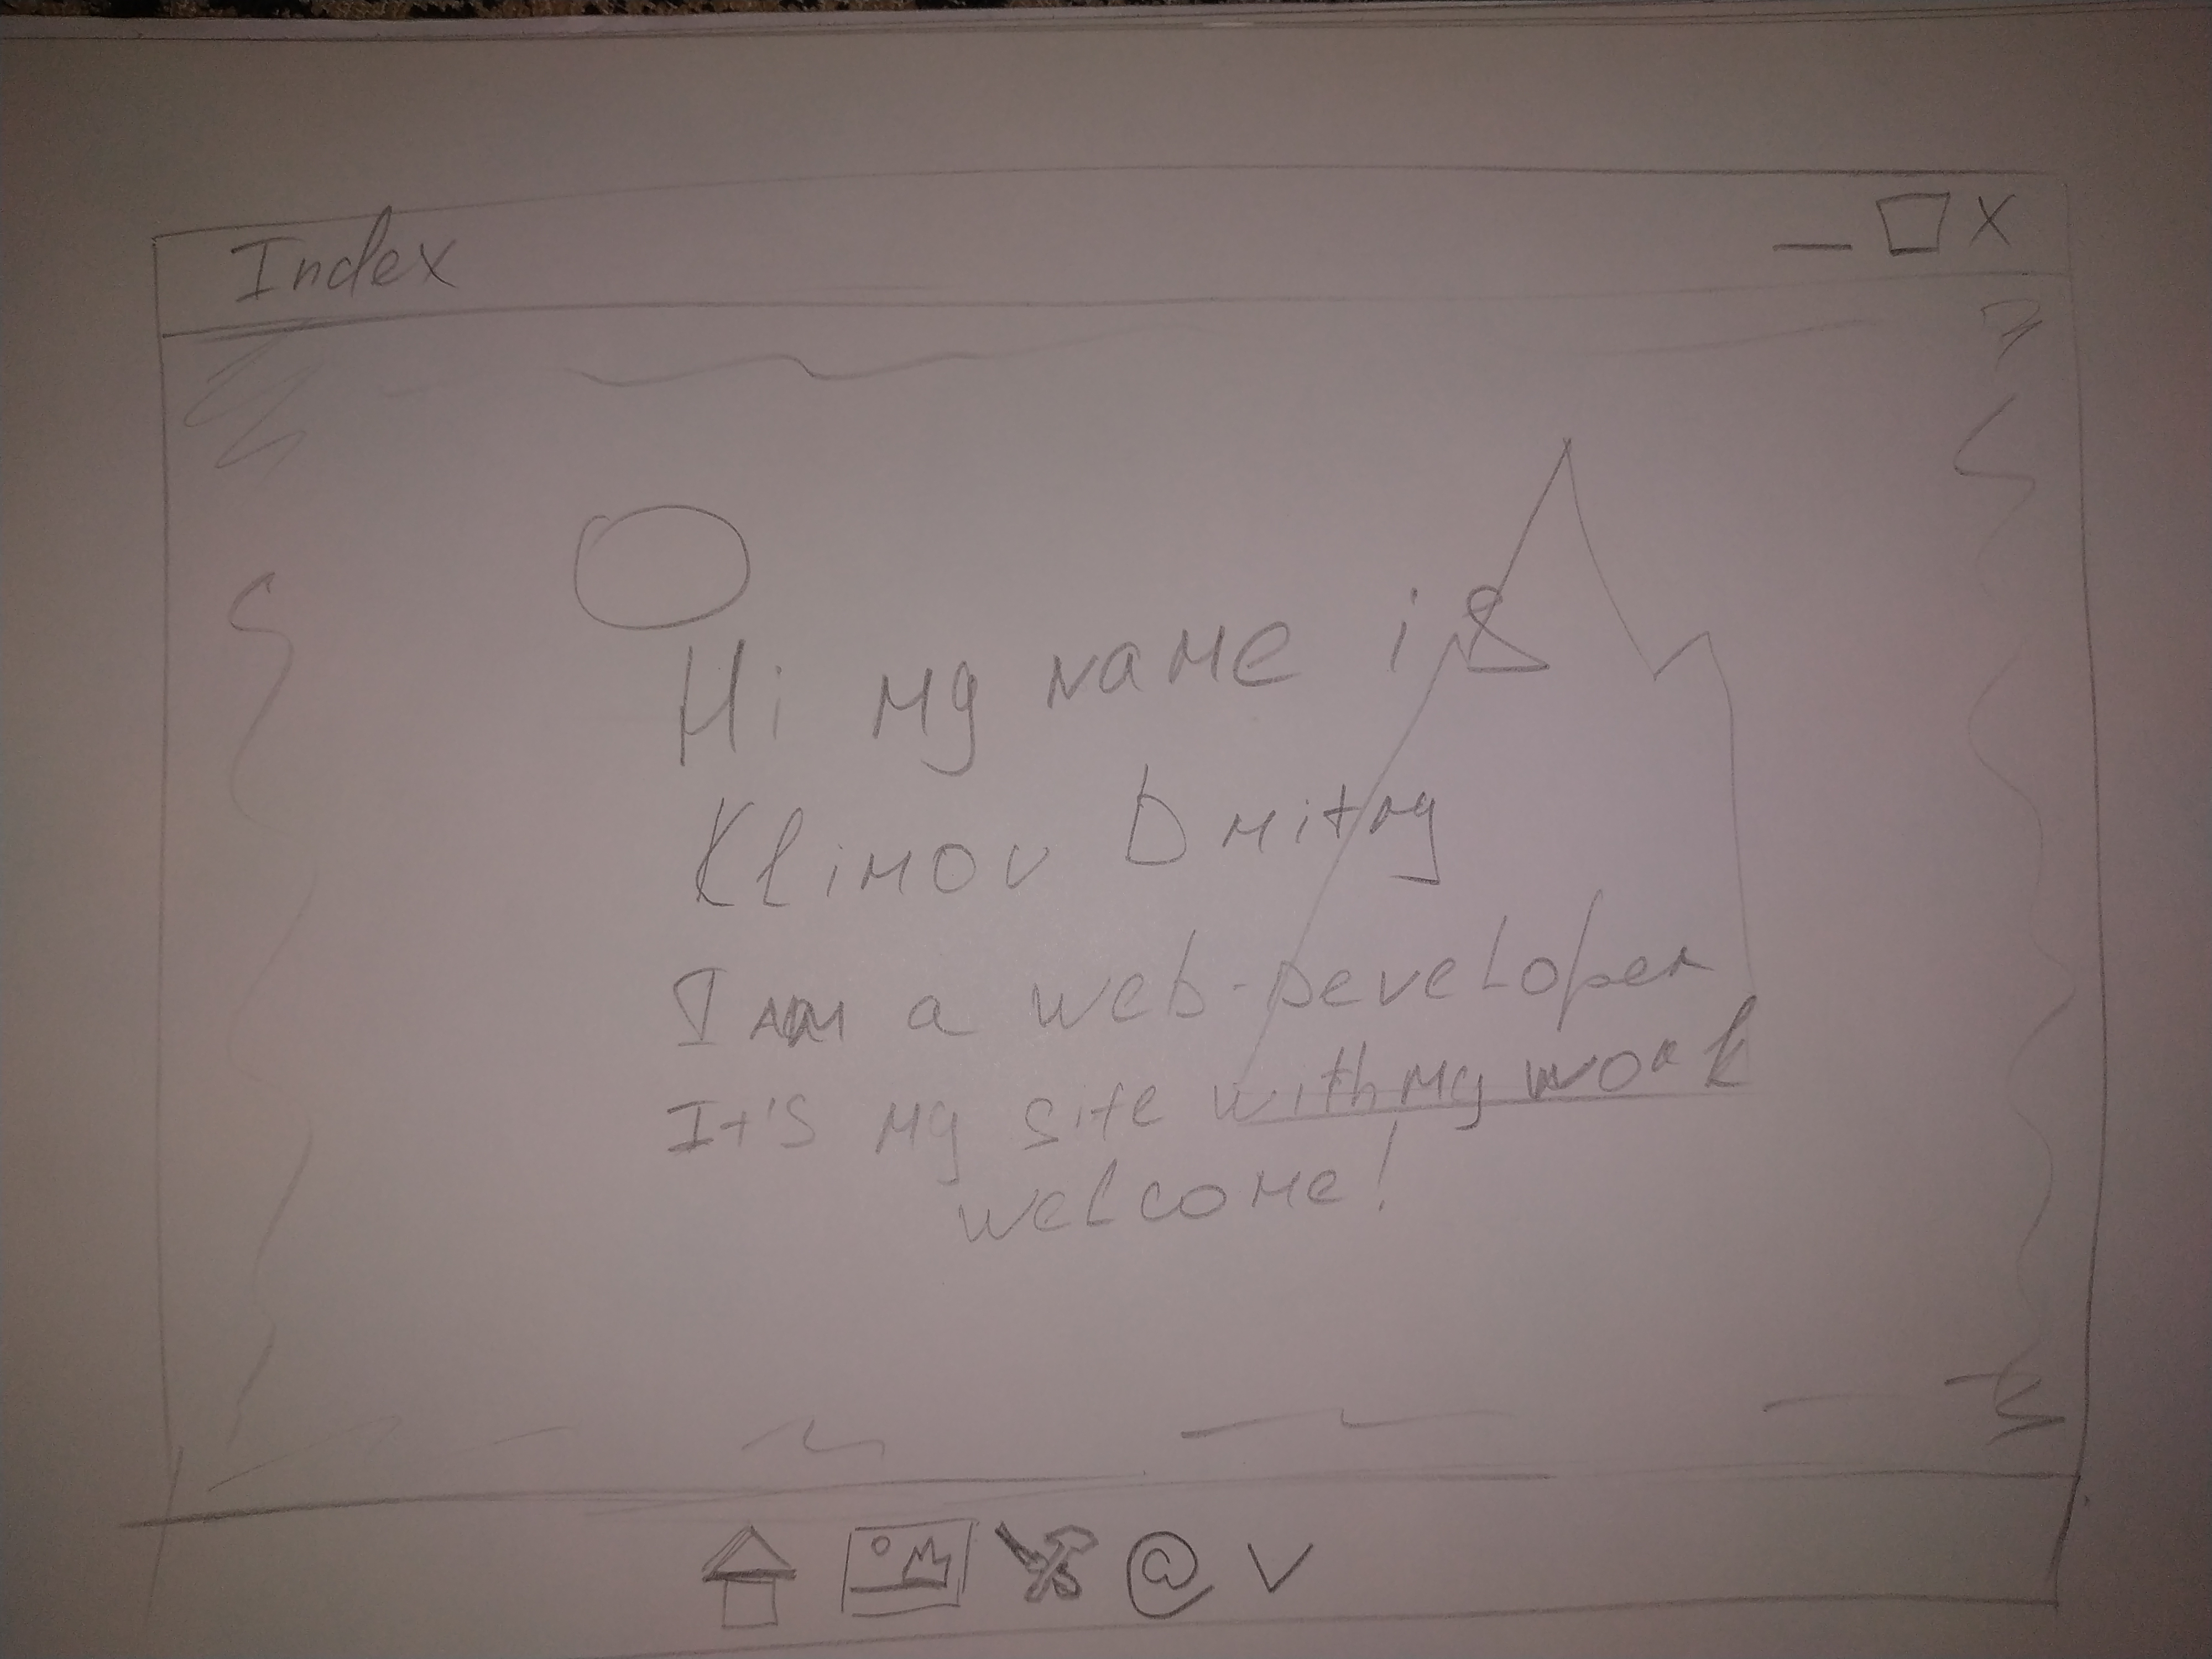 Index _ □ X
Hi my name is
Klimov Dmitry
I am a web-Developer
It's my site with my work
welcome!
@